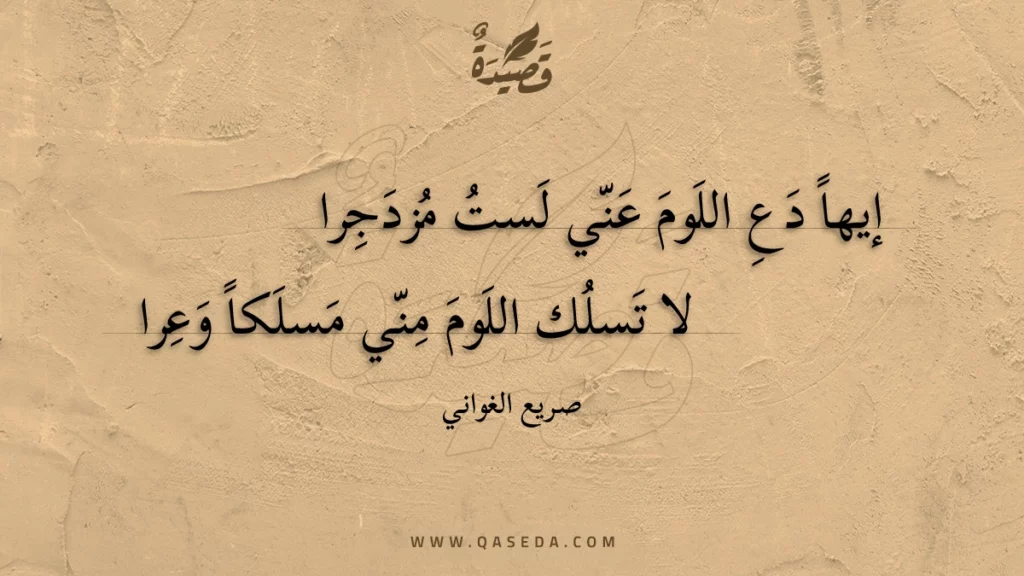 قَصِيدَةٌ
إيهاً دَعِ اللَومَ عَنّي لَستُ مُزدَجِرا
لا تَسلُك اللَومَ مِنّي مَسلَكاً وَعِرا
صريع الغواني
WWW.QASEDA.COM